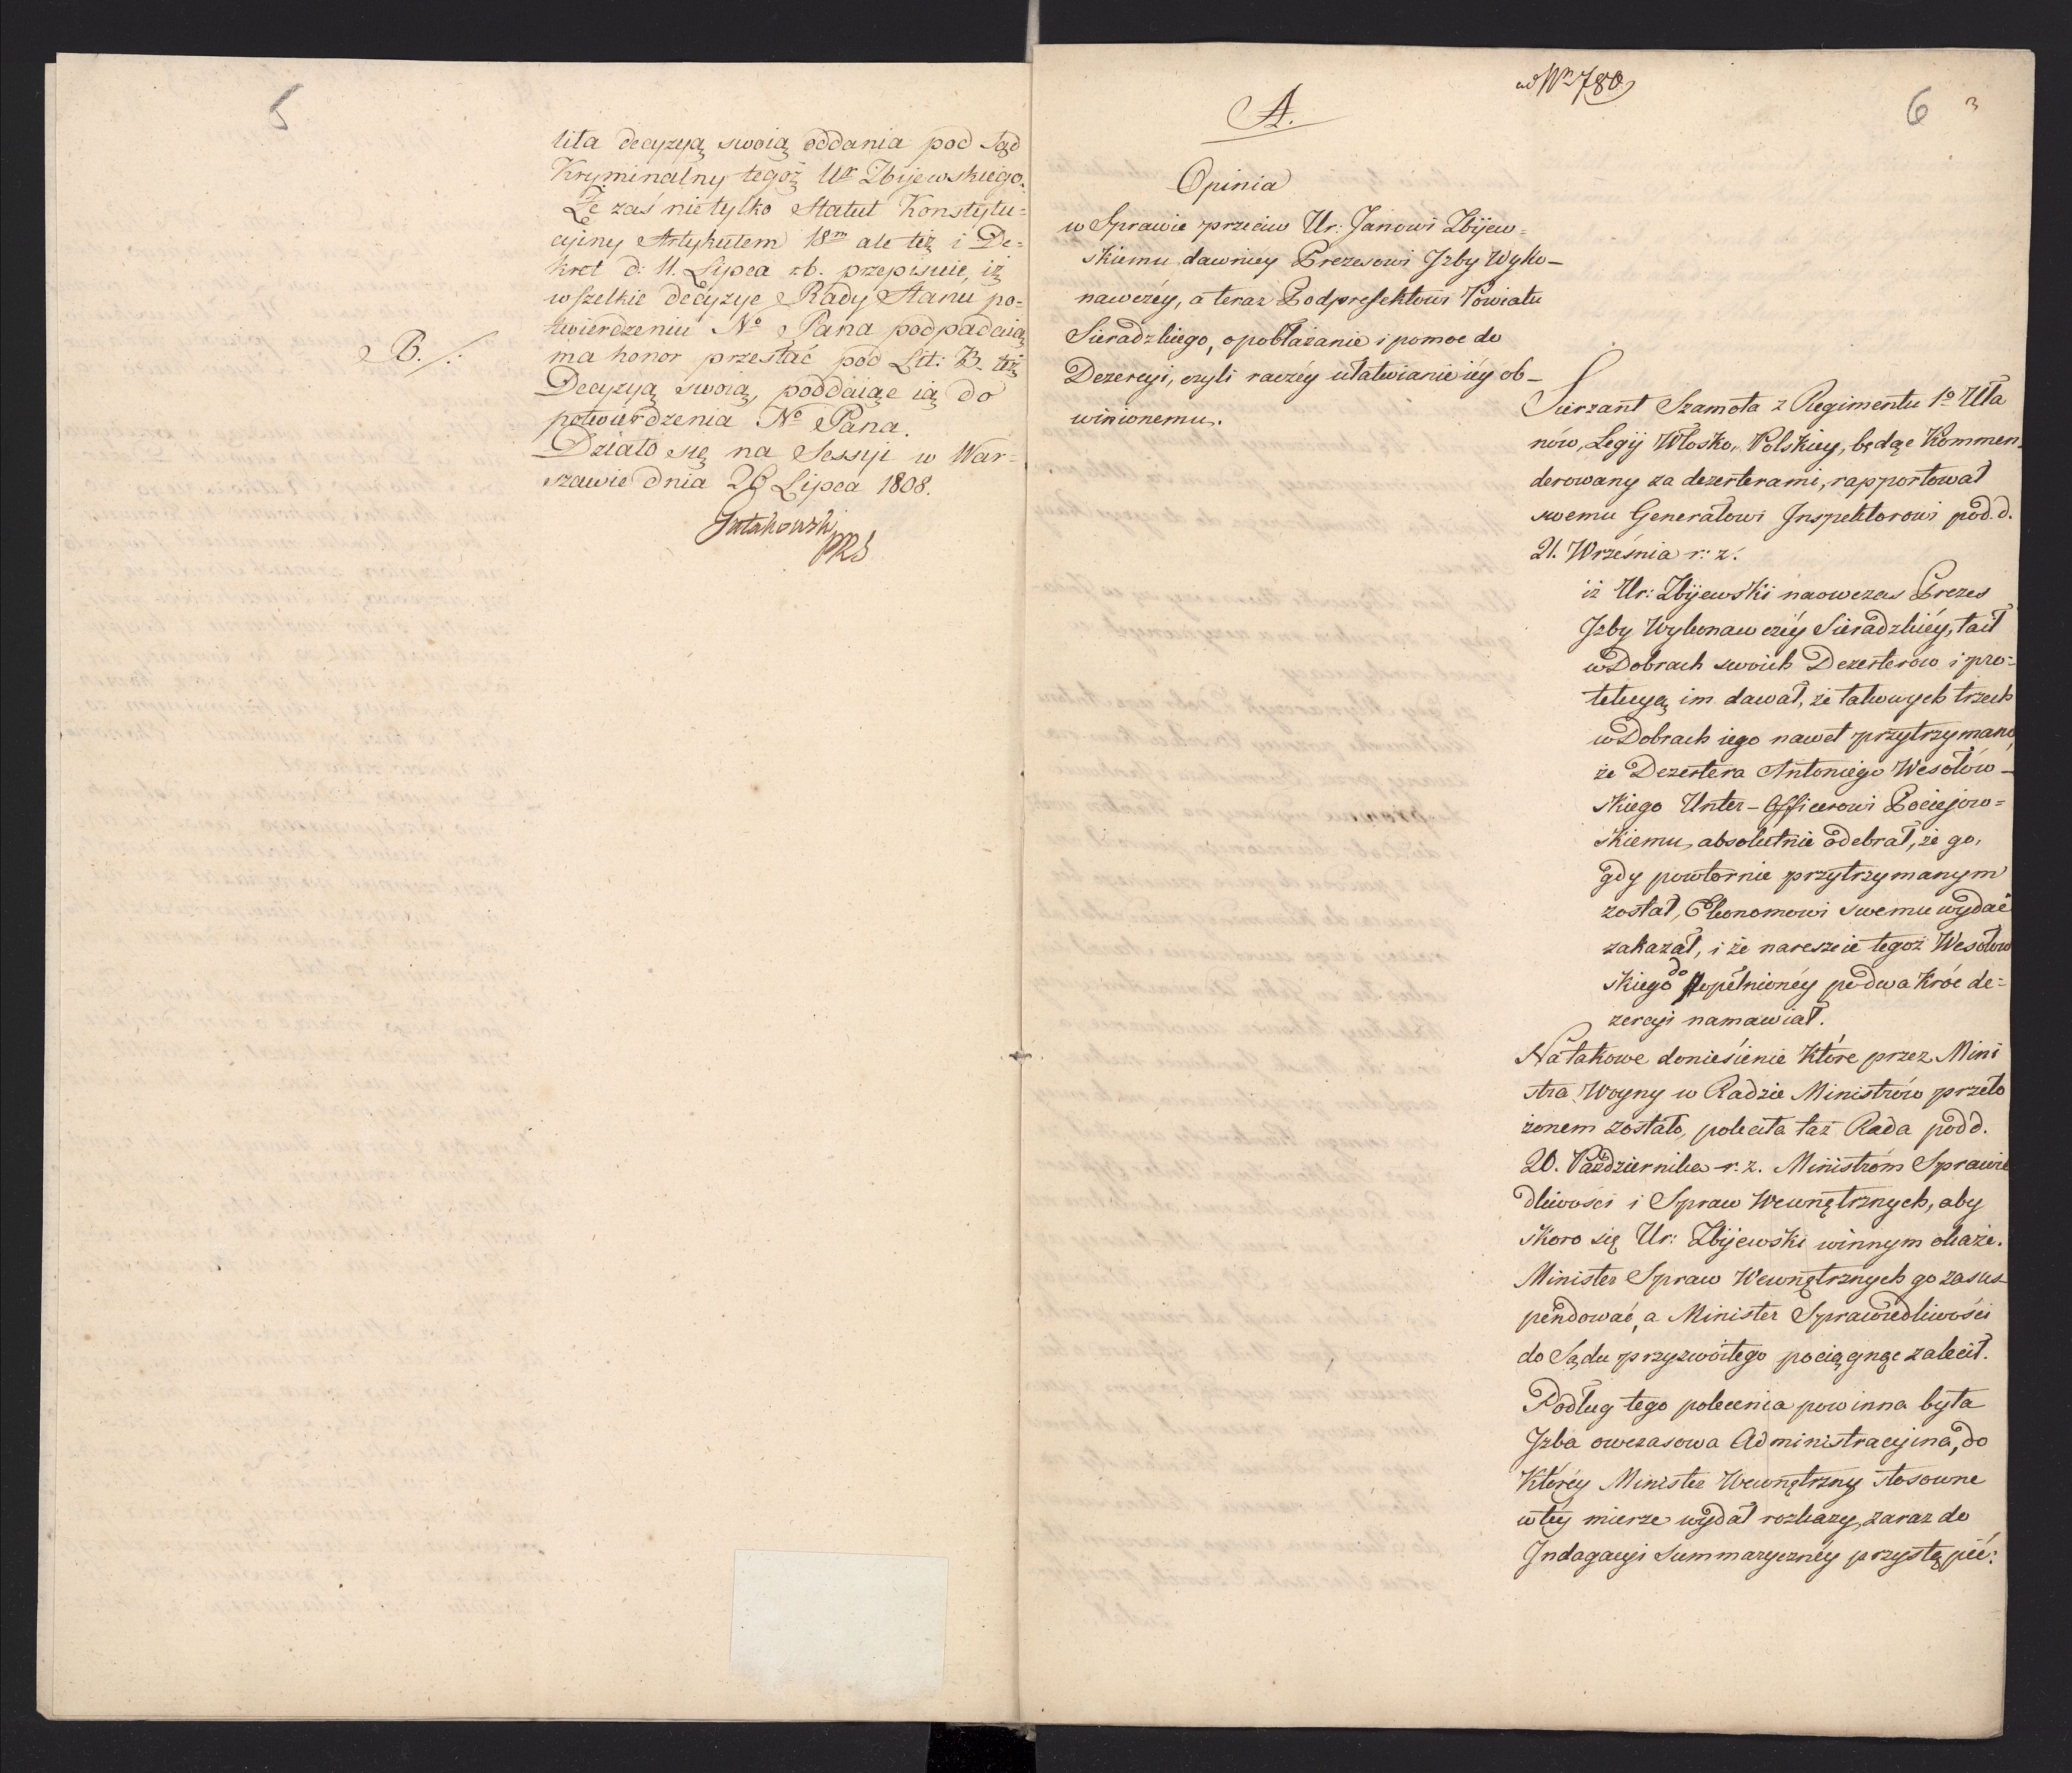 5
liła decyzyą swoią oddania pod Sąd
Kryminalny tegoż Ur Zbijewskiego.
Że zaś nie tylko Statut Konstytu=
cyiny Artykułem 18m ale też i De=
kret d: 11. Lipca rb. przepisuie, iż
wszelkie decyzye Rady Stanu po=
twierdzeniu No Pana podpadaią
B./:
ma honor przesłać pod Lit: B. też
Decyzyą swoią, poddaiąc ią do
potwierdzenia No Pana.
Działo się na Sessyi w War=
szawie dnia 26 Lipca 1808.
PRS
ad Nrm 780
6 3
A.
Opinia
w Sprawie przeciw Ur: Janowi Zbijew=
skiemu dawniéy Prezesowi Jzby Wyko–
nawczéy, a teraz Podprefektowi Powiatu
Sieradzkiego, o pobłażanie i pomoc do
Dezercyi, czyli raczéy ułatwianie iéy ob–
winionemu.
Sierzant Szamota z Regimentu 1o Uła
nów, Legij Włosko„ Polskiey, będąc Kommen–
derowany za dezerterami, rapportował
swemu Generałowi Jnspektorowi pod. d.
21. Września r: z:
iż Ur: Zbijewski naowczas Prezes
Jzby Wykonawczéy Sieradzkiéy, taił
w Dobrach swoich Dezerterow i pro=
tekcyą im dawał, że takowych trzech
w Dobrach iego nawet przytrzymano,
że Dezertera Antoniego Wesołow–
skiego Unter–Officerowi Pociejow=
skiemu, absolutnie odebrał, że go,
gdy powtornie przytrzymanym
został, Ekonomowi swemu wydać
zakazał, i że nareszcie tegoż Wesołow
skiego do popełnionéy podwa króć de=
zercyi namawiał.
Na takowe doniesienie które przez Mini
stra Woyny w Radzie Ministrów przeło
żonem zostało, poleciła taż Rada pod d.
20. Października r. z. Ministróm Sprawie
dliwości i Spraw Wewnętrznych, aby
skoro się Ur: Zbijewski winnym okaże.
Minister Spraw Wewnętrznych go zasus–
pendować, a Minister Sprawiedliwości
do Sądu przyzwoitego pociągnąc zalecił.
Podług tego polecenia powinna była
Jzba owczasowa Administracyjna, do
któréy Minister Wewnętrzny stosowne
w téy mierze wydał rozkazy, zaraz do
Jndagacyi Summaryczney przystąpić: